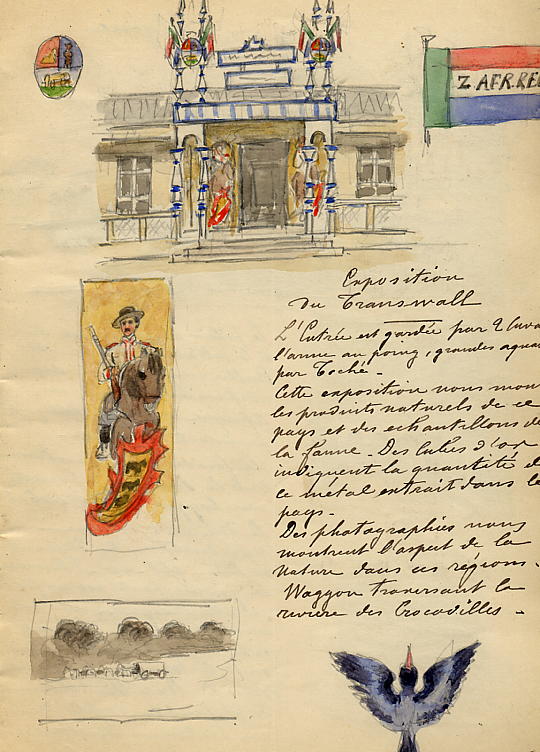 Z AFR.RE
Exposition
du Transwall
L'Entrée est gardée par 2
l'arme au poing, grandes aqua
par Toché -
Cette exposition nous mon
les produits naturels de ce
pays et des echantillons de
la faune - Des cubes d'or
indiquent la quantité d
ce métal extrait dans le
pays -
Des photographies nous
montrent l'aspect de la
Nature dans ces régions -
Waggon traversant la
rivière des Crocodilles -